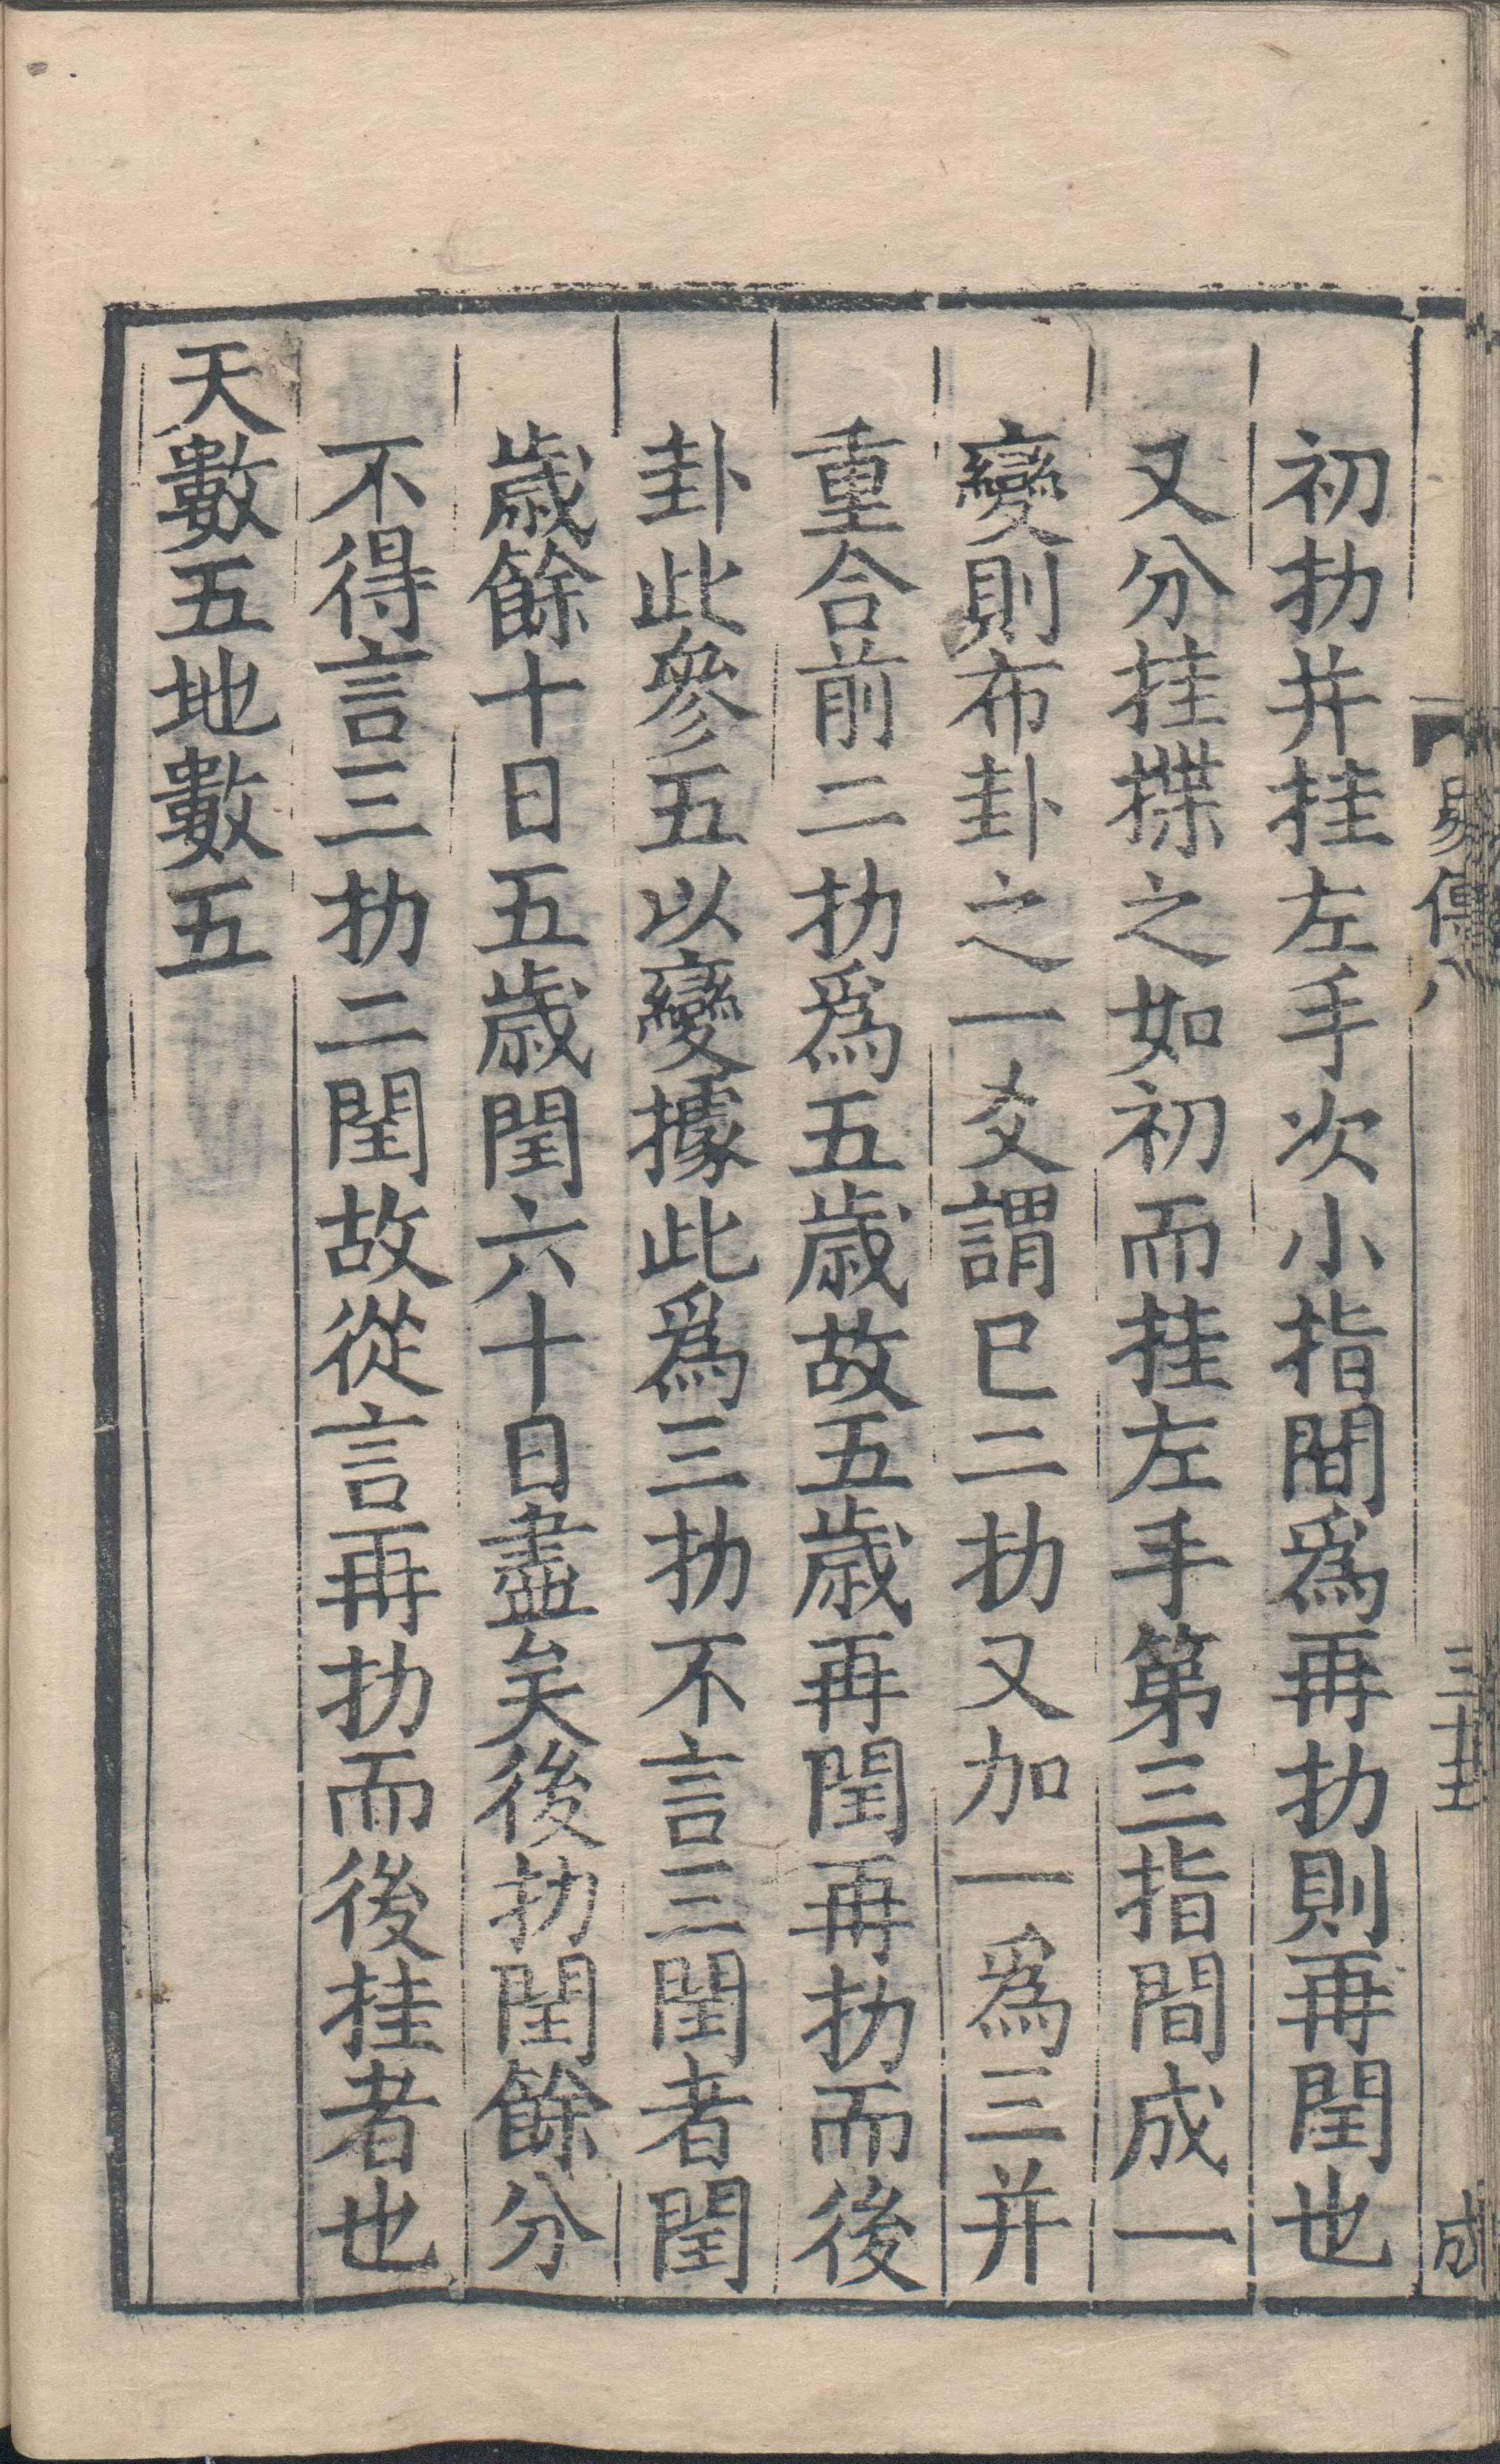 初扐并挂左手次小指間爲再扐則再閏也
又分挂揲之如初而挂左手第三指間成一
變則布卦之一爻謂巳二扐又加一爲三并
重合前二扐爲五歲故五歲再閏再扐而後
卦此參五以變據此爲三扐不言三閏者閏
歲餘十日五歲閏六十日盡矣後扐閏餘分
不得言三扐二閏故從言再扐而後挂者也
天數五地數五
易傳八
成